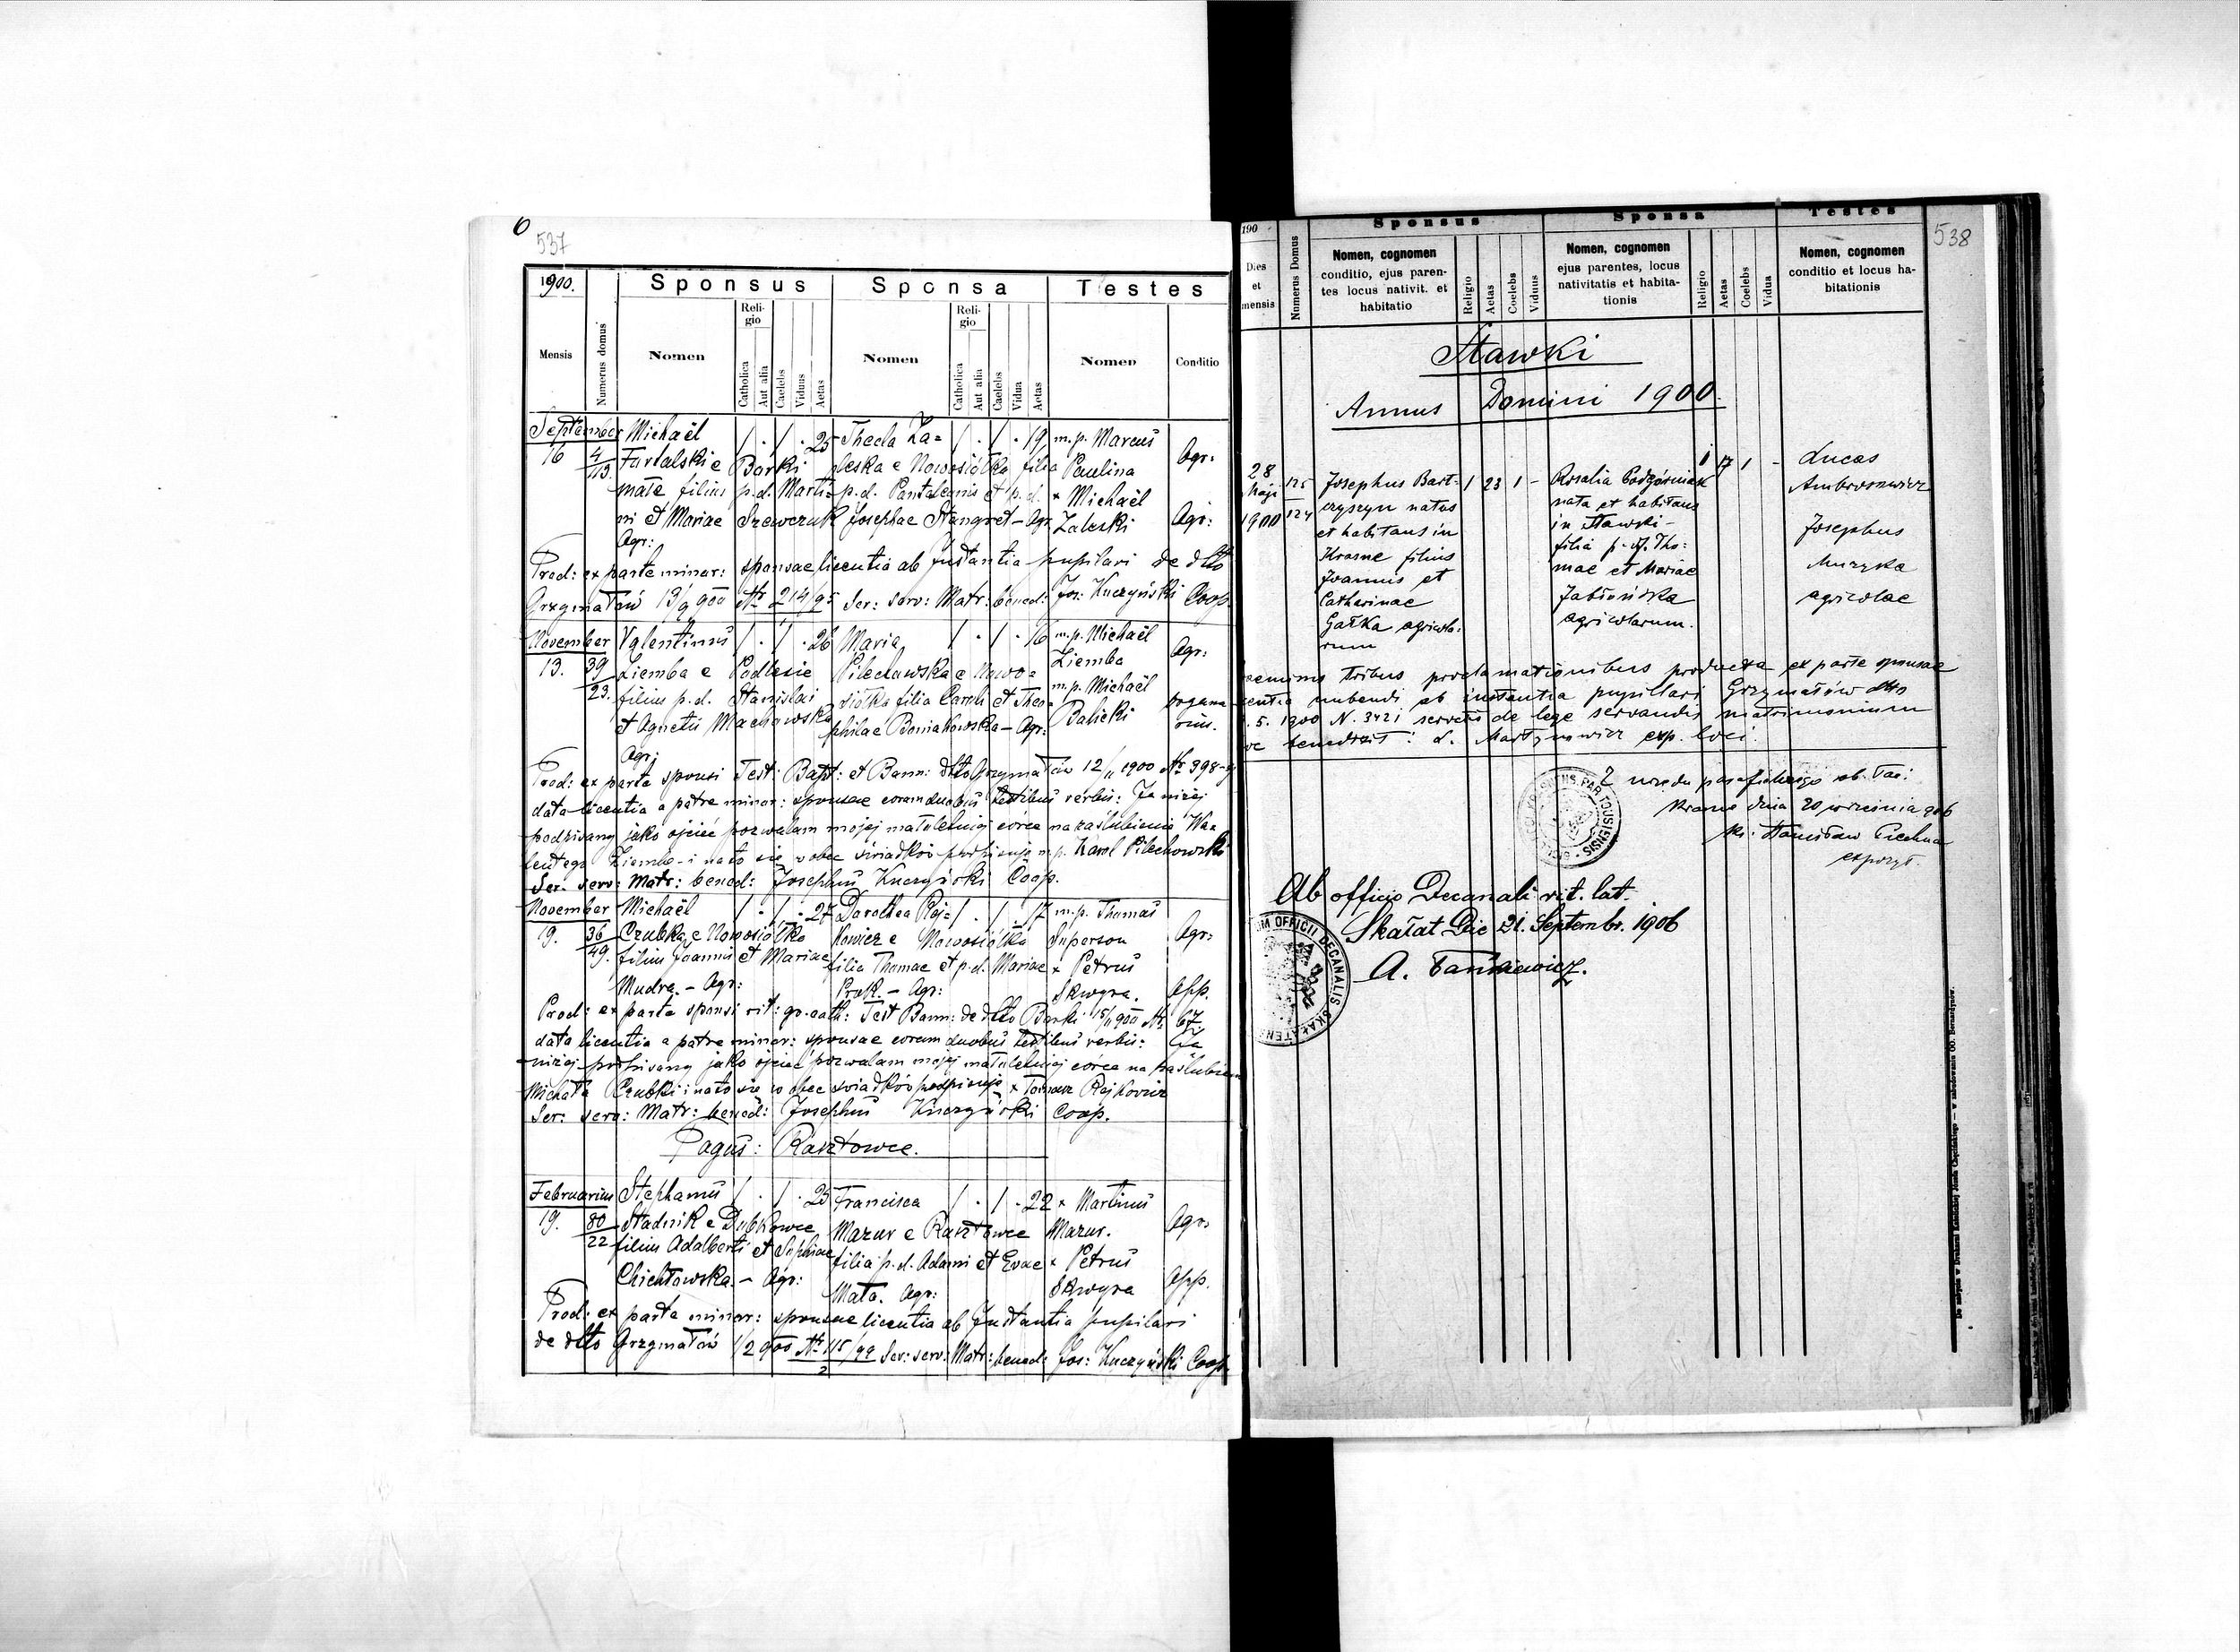 6
537
1900.
Sponsus
Sponsa
Testes
Mensis
Numerus domus
Nomen
Religio
Catholica
Aut alia
Caelebs
Viduus
Aetas
Nomen
Religio
Catholica
Aut alia
Caelebs
Vidua
Aetas
Nomen
Conditio
September Michaël / . / . 25 Thecla Za= / . / . 19 m.p. Marcus
16 4/13. Furtalski e Borki leska e Nowosiółka filia Paulina Agr:
małe filius p.d. Marti= p.d. Pantaleonis et p.d. × Michaël
ni et Mariae Szewczuk Josephae Stangret – Agr. Zaleski Agr:
Agr:
Prod: ex parte minor: sponsae licentia ab Instantia pupilari de dtto
Grzymałów 13/9 900 Nr 214/95 Ser: serv: Matr: bened: Jos: Kuczyński Coop.
November Valentinus / . / . 26 Maria / . / . 16 m.p. Michaël
13. 39/23. Ziemba e Podlesie Pilechowska e Nowo= Ziemba Agr:
filius p.d. Stanislai siółka filia Caroli et Theo= m.p. Michaël
et Agnetis Machowska philae Boniakowska – Agr: Balicki organa
rius.
Agr:
Prod: ex parte sponsi Test: Bapt: et Bann: dtto Grzymałów 12/11 1900 Nr 398
data licentia a patre minor: sponsae coram duobus testibus verbis: Ja niżej
podpisany jako ojciec pozwalam mojej małoletniej córce na zaślubienie Wa=
lentego Ziembe i na to się wobec świadków podpisuję m.p. Karol Pilechowski
Ser. serv: Matr: bened: Josephus Kuczyński Coop.
November Michaël / . / . 27 Dorothea Rej= / . / . 17 m.p. Thomas
19. 36/49. Czubka e Nowosiółka kowicz e Nowosiółka Superson Agr:
filius Joannis et Mariae filia Thomae et p.d. Mariae × Petrus
Mudra. – Agr: Prok. – Agr: Skwyra. App.
Prod: ex parte sponsi rit: gr. cath: Test Bann: de dtto Borki 15/11 900 Nr. 67
data licentia a patre minor: sponsae coram duobus testibus verbis: Ja
niżej podpisany jako ojciec pozwalam mojej małoletniej córce na zaślubienie
Michała Czubki i na to się wobec świadków podpisuję × Tomasz Rejkowicz
Ser. serv: Matr: bened: Josephus Kuczyński Coop.
Pagus: Rasztowce.
Februarius Stephanus / . / . 25 Francisca / . / . 22 × Martinus
19. 80/22 Stadnik e Dubkowce Mazur e Rasztowce Mazur. Agr:
filius Adalberti et Sophiae filia p.d. Adami et Evae × Petrus
Chichłowska – Agr: Mata. Agr: Skwyra App.
Prod: ex parte minor: sponsae licentia ab Instantia pupilari
de dtto Grzymałów 1/2 900 Nr 115/99 Ser: serv: Matr: bened: Jos: Kuczyński Coop.
538
190
Sponsus
Sponsa
Testes
Dies et mensis
Numerus Domus
Nomen, cognomen
conditio, ejus paren-
tes locus nativit. et
habitatio
Religio
Aetas
Coelebs
Viduus
Nomen, cognomen
ejus parentes, locus
nativitatis et habita-
tionis
Religio
Aetas
Coelebs
Vidua
Nomen, cognomen
conditio et locus ha-
bitationis
Stawki
Annus Domini 1900.
28
Maji
1900
125
124
Josephus Bart- 1 23 1 –
czyszyn natus
et habitans in
Krasne filius
Joannis et
Catharinae
Gałka agricola-
rum
Rosalia Podgórniak 1 17 1 -
nata et habitans
in Stawki –
filia p. d. Tho-
mae et Mariae
Jabłońska
agricolarum.
Lucas
Ambrosewicz
Josephus
Muzyka
agricolae
praemissis tribus proclamationibus producta ex parte sponsae
licentia nubendi ab instantia pupillari Grzymałów dtto
5. 1900 N. 3421 servatis de lege servandis matrimonium
benedixit: L. Martynowicz exp. loci.
Z urzędu parafialnego ob. łac:
Krasne dnia 20 września 906
ks: Stanisław Piechna
expozyt.
Ab officio Decanali rit. lat.
Skałat Die 21. Septembr. 1906
A. Tańkiewicz.
OFFICII DECANALIS SKAŁATEN